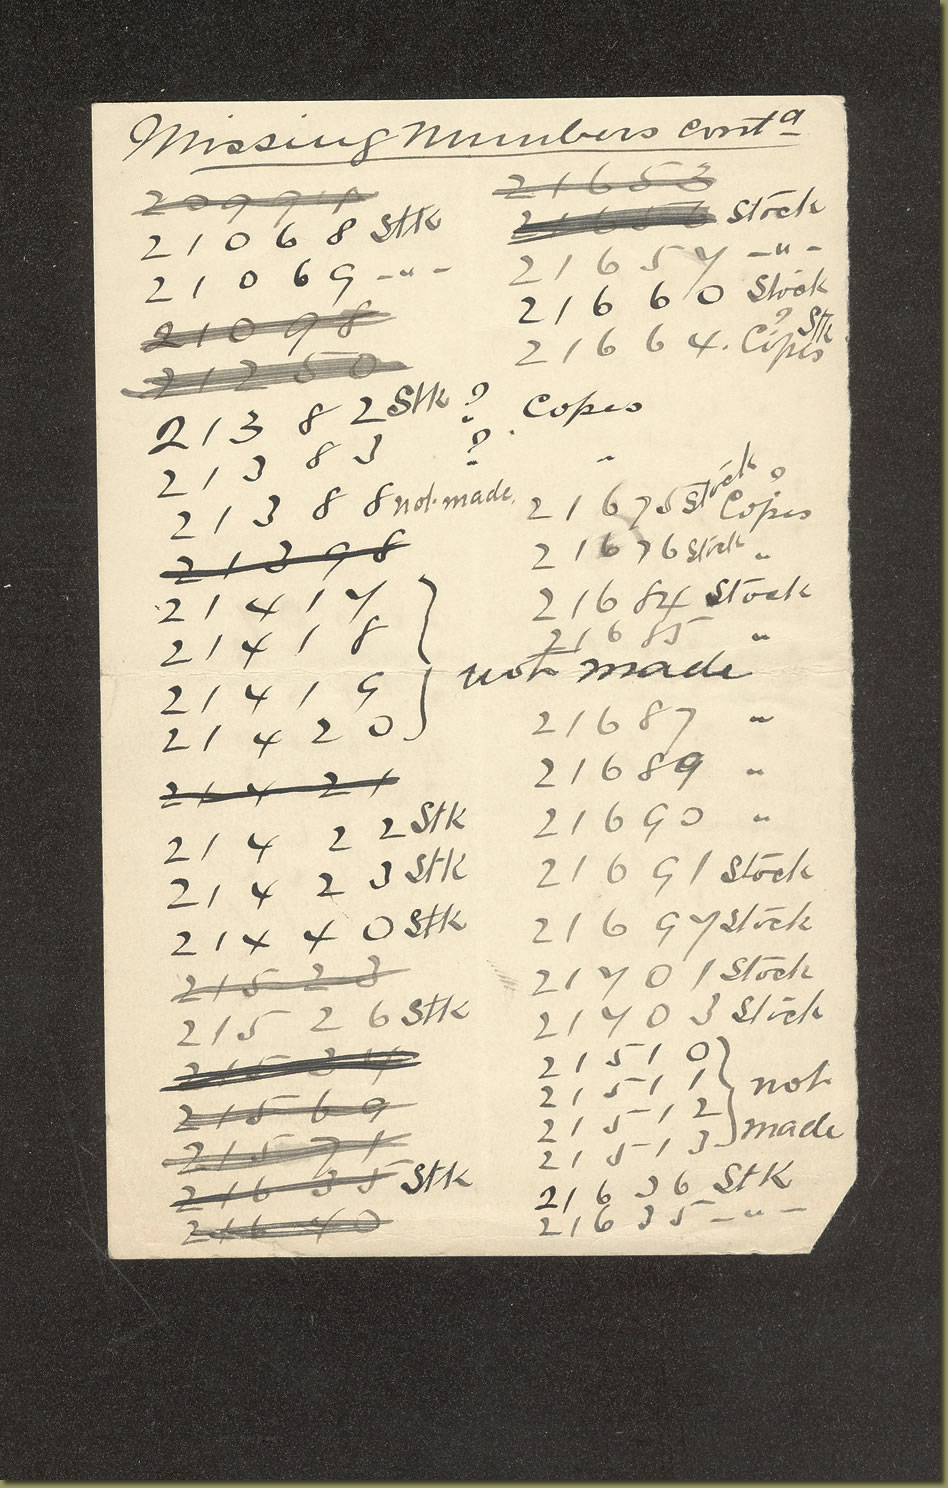 Missing Numbers contd
20991
21068 Stk
21069 - " -
21098
21250
21382 Stk ? Copes
21383 ? "
21388 not made.
21398
21417
21418
21419
21420
not made
21421
21422 Stk
21423 Stk
21440 Stk
21523
21526 Stk
21534
21569
21571
21635 Stk
21640
21653
21656 Stock
21657 - " -
21660 Stock
21664. Copes ? Stk
21675 Stock Copes ?
21676 Stock "
21684 Stock
21685 "
21687 "
21689 "
21690 "
21691 Stock
21697 Stock
21701 Stock
21703 Stock
21510
21511 not
21512 made
21513
21636 Stk
21635 - " -